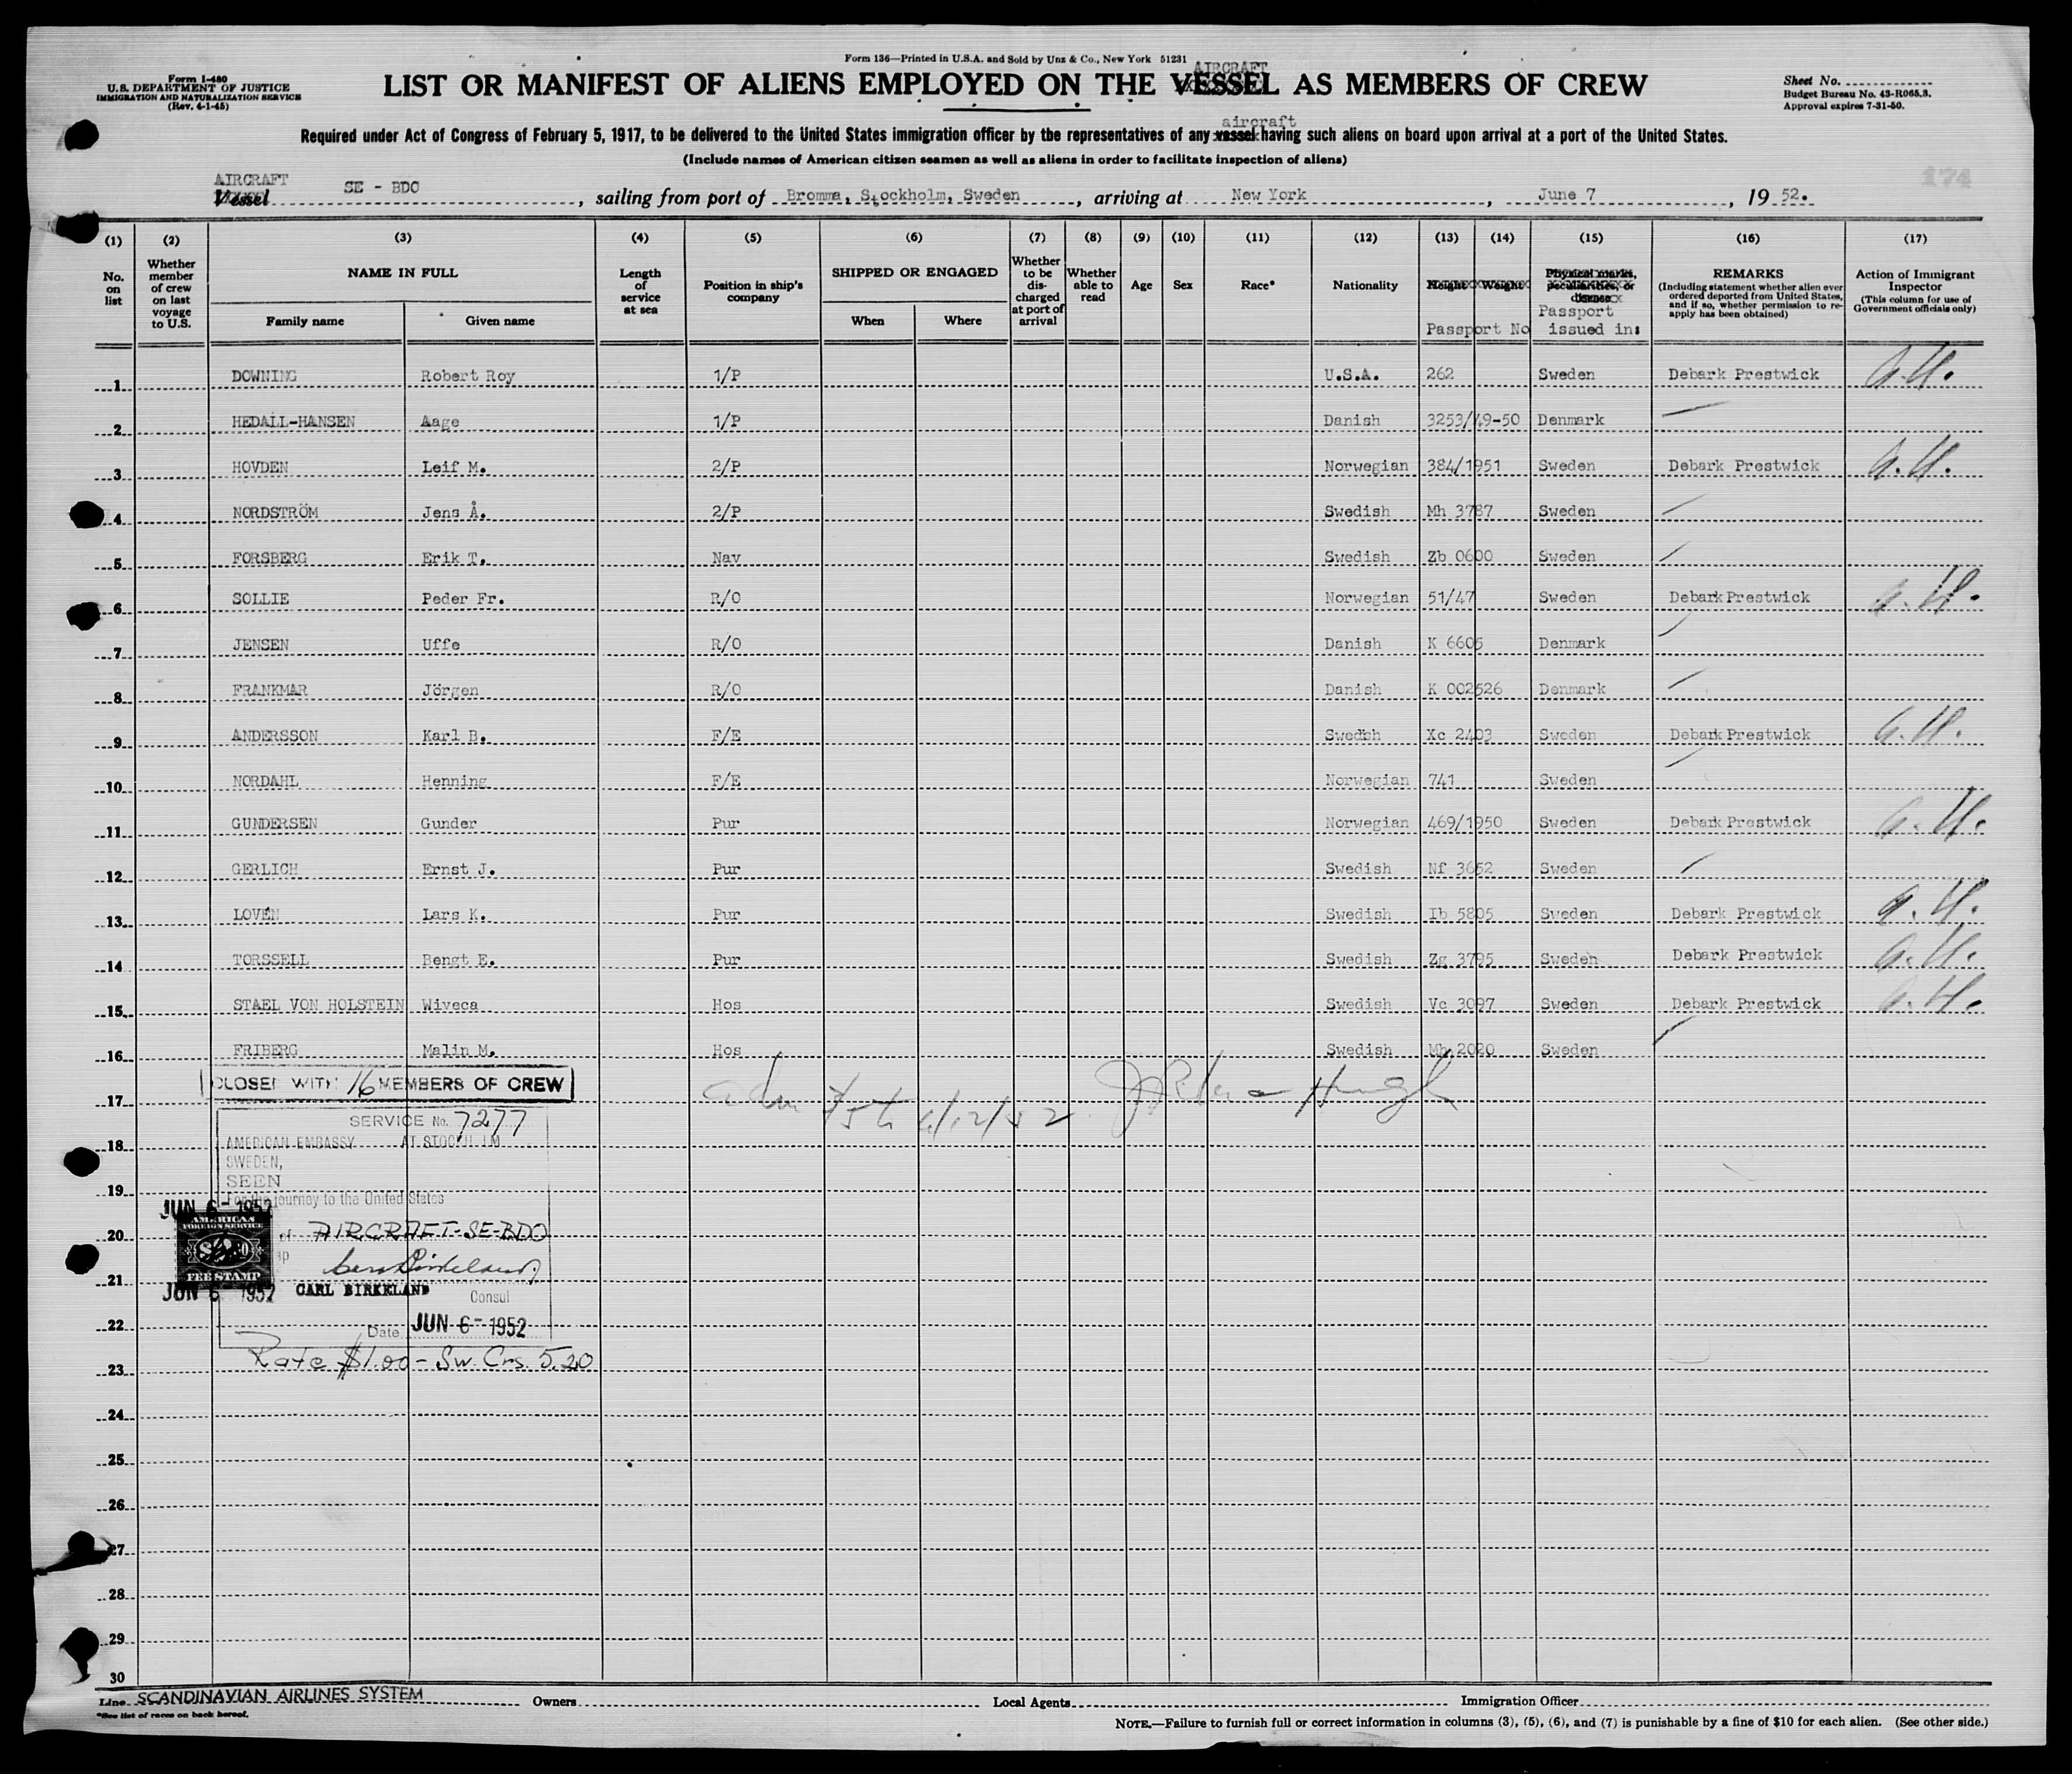 Form 136—Printed in U.S.A. and Sold by Unz & Co., New York 51231
Form I-480
U.S. DEPARTMENT OF JUSTICE
IMMIGRATION AND NATURALIZATION SERVICE
(Rev. 4-1-45)
AIRCRAFT
LIST OR MANIFEST OF ALIENS EMPLOYED ON THE VESSEL AS MEMBERS OF CREW
Sheet No.
Budget Bureau No. 43-R065.3.
Approval expires 7-31-50.
aircraft
Required under Act of Congress of February 5, 1917, to be delivered to the United States immigration officer by the representatives of any vessel having such aliens on board upon arrival at a port of the United States.
(Include names of American citizen seamen as well as aliens in order to facilitate inspection of aliens)
174
AIRCRAFT
Vessel SE - BDO, sailing from port of Bromma, Stockholm, Sweden, arriving at New York, June 7, 19 52.
(1) (2) (3) (4) (5) (6) (7) (8) (9) (10) (11) (12) (13) (14) (15) (16) (17)
No. on list
Whether member of crew on last voyage to U.S.
NAME IN FULL
Family name Given name
Length of service at sea
Position in ship's company
SHIPPED OR ENGAGED
When Where
Whether to be discharged at port of arrival
Whether able to read
Age
Sex
Race*
Nationality
Height Weight
Passport No
Physical marks, peculiarities, or disease
Passport issued in:
REMARKS
(Including statement whether alien ever ordered deported from United States, and if so, whether permission to reapply has been obtained)
Action of Immigrant Inspector
(This column for use of Government officials only)
1 DOWNING Robert Roy 1/P U.S.A. 262 Sweden Debark Prestwick
2 HEDALL-HANSEN Aage 1/P Danish 3253/49-50 Denmark
3 HOVDEN Leif M. 2/P Norwegian 384/1951 Sweden Debark Prestwick
4 NORDSTRÖM Jens Å. 2/P Swedish Mh 3787 Sweden
5 FORSBERG Erik T. Nav Swedish Zb 0600 Sweden
6 SOLLIE Peder Fr. R/O Norwegian 51/47 Sweden Debark Prestwick
7 JENSEN Uffe R/O Danish K 6605 Denmark
8 FRANKMAR Jörgen R/O Danish K 002526 Denmark
9 ANDERSSON Karl B. F/E Swedsh Xc 2403 Sweden Debark Prestwick
10 NORDAHL Henning F/E Norwegian 741 Sweden
11 GUNDERSEN Gunder Pur Norwegian 469/1950 Sweden Debark Prestwick
12 GERLICH Ernst J. Pur Swedish Nf 3652 Sweden
13 LOVÉN Lars K. Pur Swedish Ib 5805 Sweden Debark Prestwick
14 TORSSELL Bengt E. Pur Swedish Zg 3795 Sweden Debark Prestwick
15 STAEL VON HOLSTEIN Wiveca Hos Swedish Vc 3097 Sweden Debark Prestwick
16 FRIBERG Malin M. Hos Swedish Mh 2020 Sweden
CLOSED WITH 16 MEMBERS OF CREW
17
SERVICE No. 7277
6/12/52
18
AMERICAN EMBASSY AT STOCKHOLM
SWEDEN,
SEEN
19
For the journey to the United States
JUN 6 - 1952
20
of AIRCRAFT-SE-BDO
AMERICAN FOREIGN SERVICE
FEE STAMP
21
JUN 6 1952
CARL BIRKELAND
Consul
22
Date JUN 6 - 1952
23
Rate $1.00 - Sw. Crs. 5.20
24
25
26
27
28
29
30
Line SCANDINAVIAN AIRLINES SYSTEM Owners Local Agents Immigration Officer
*See list of races on back hereof.
NOTE.—Failure to furnish full or correct information in columns (3), (5), (6), and (7) is punishable by a fine of $10 for each alien. (See other side.)